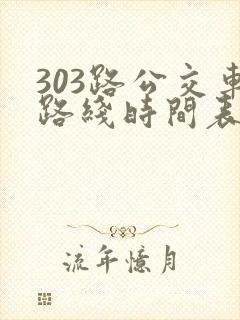 303路公交車
路綫時間表
流年憶月